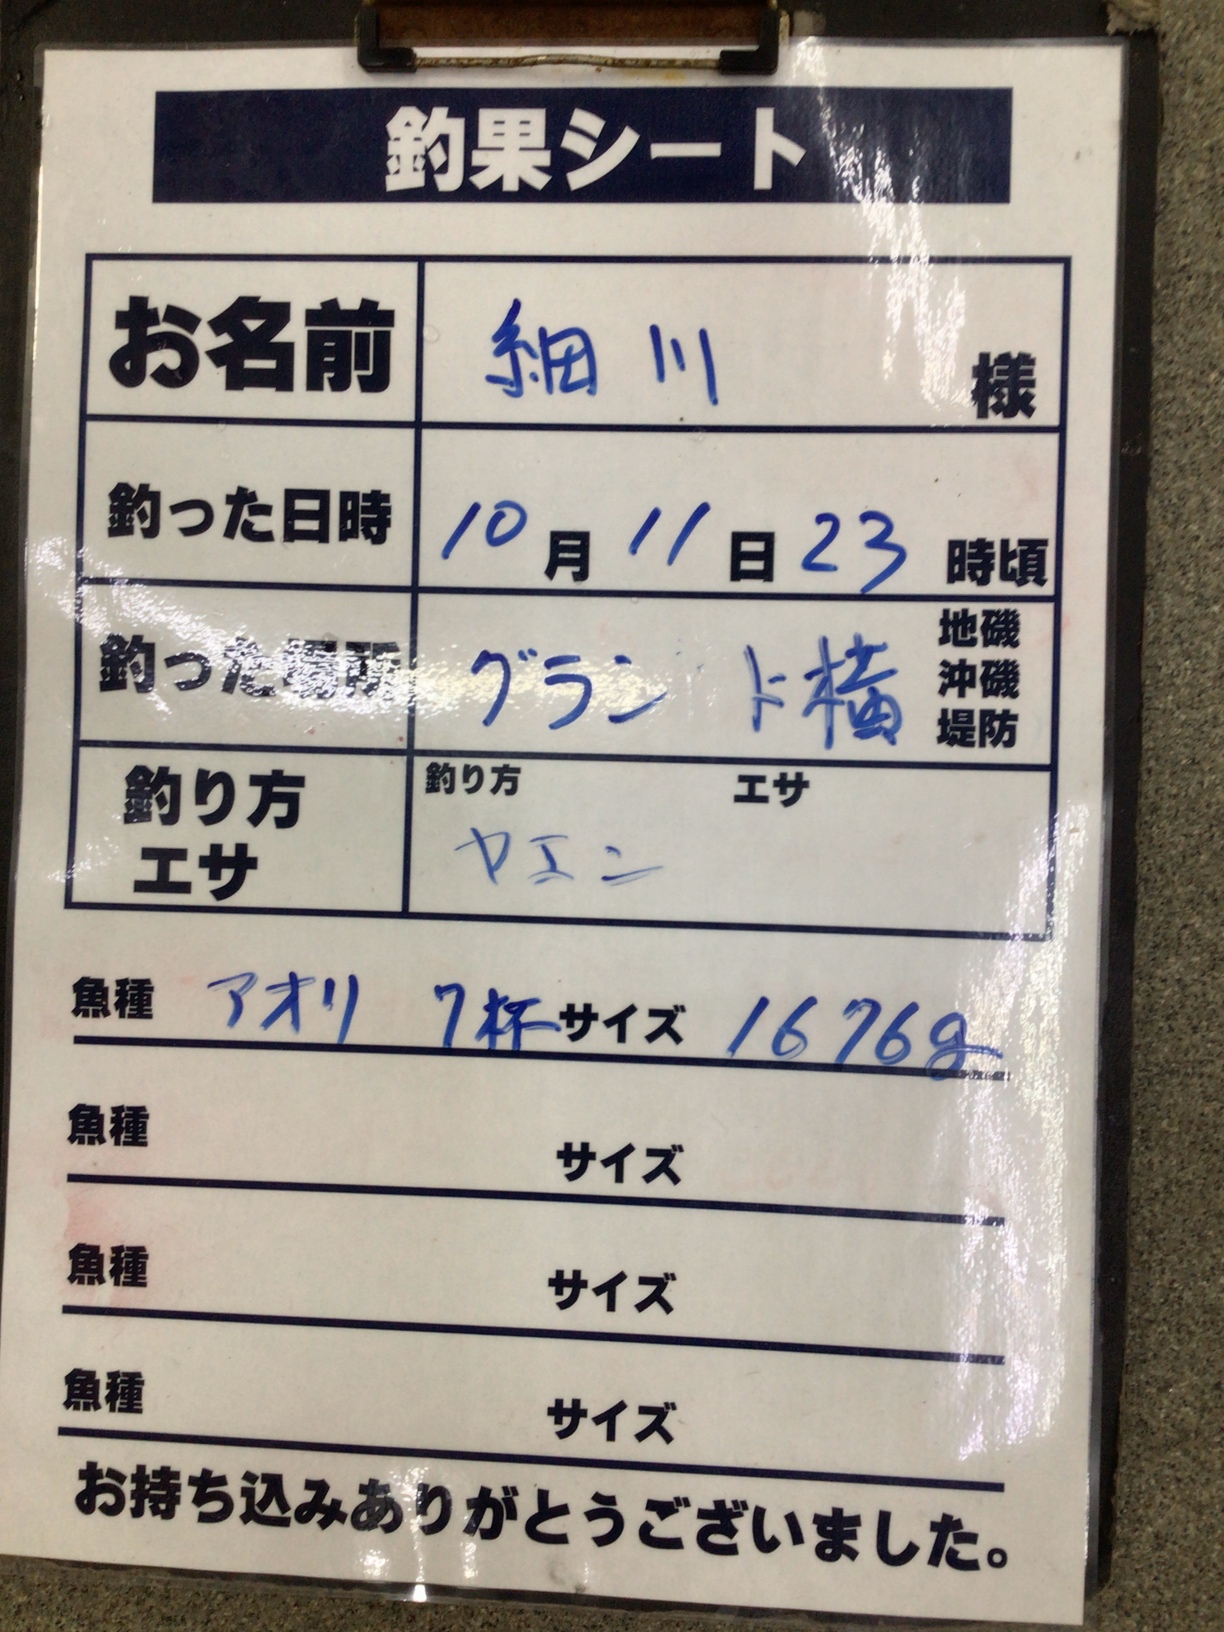 釣果シート
お名前 細川 様
釣った日時 10月11日23時頃
釣った場所 グランド横 地磯
沖磯
堤防
釣り方 エサ
釣り方
エサ
ヤエン
魚種 アオリ 7杯 サイズ 1676g
魚種 サイズ
魚種 サイズ
魚種 サイズ
お持ち込みありがとうございました。